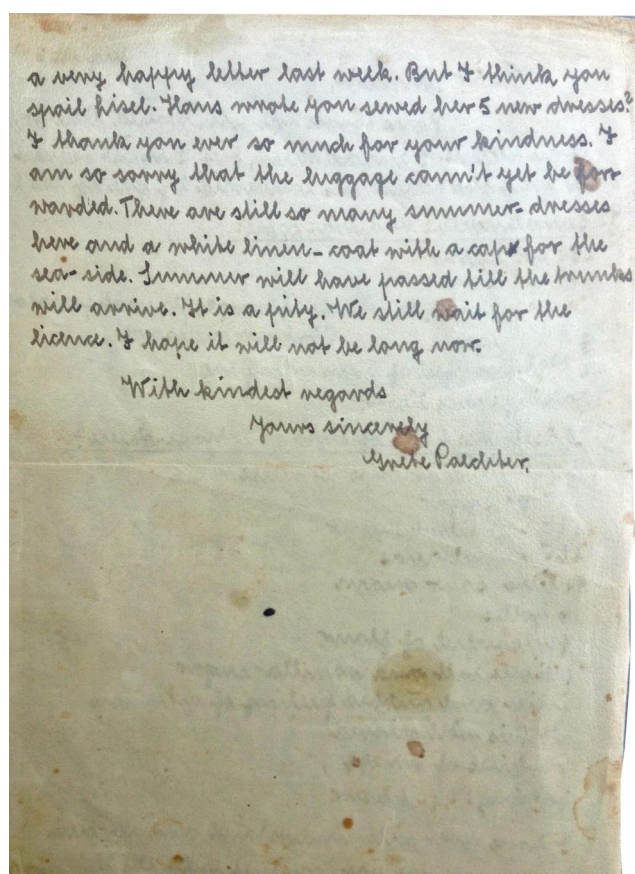 a very happy letter last week. But I think you
spoil Lisel. Hans wrote you sewed her 5 new dresses?
I thank you ever so much for your kindness. I
am so sorry that the luggage cann't yet be for
warded. There are still so many summer-dresses
here and a white linen-coat with a cap for the
sea-side. Summer will have passed till the trunks
will arrive. It is a pity. We still wait for the
licence. I hope it will not be long now.
With kindest regards
Yours sincerely
Grete Paechter.